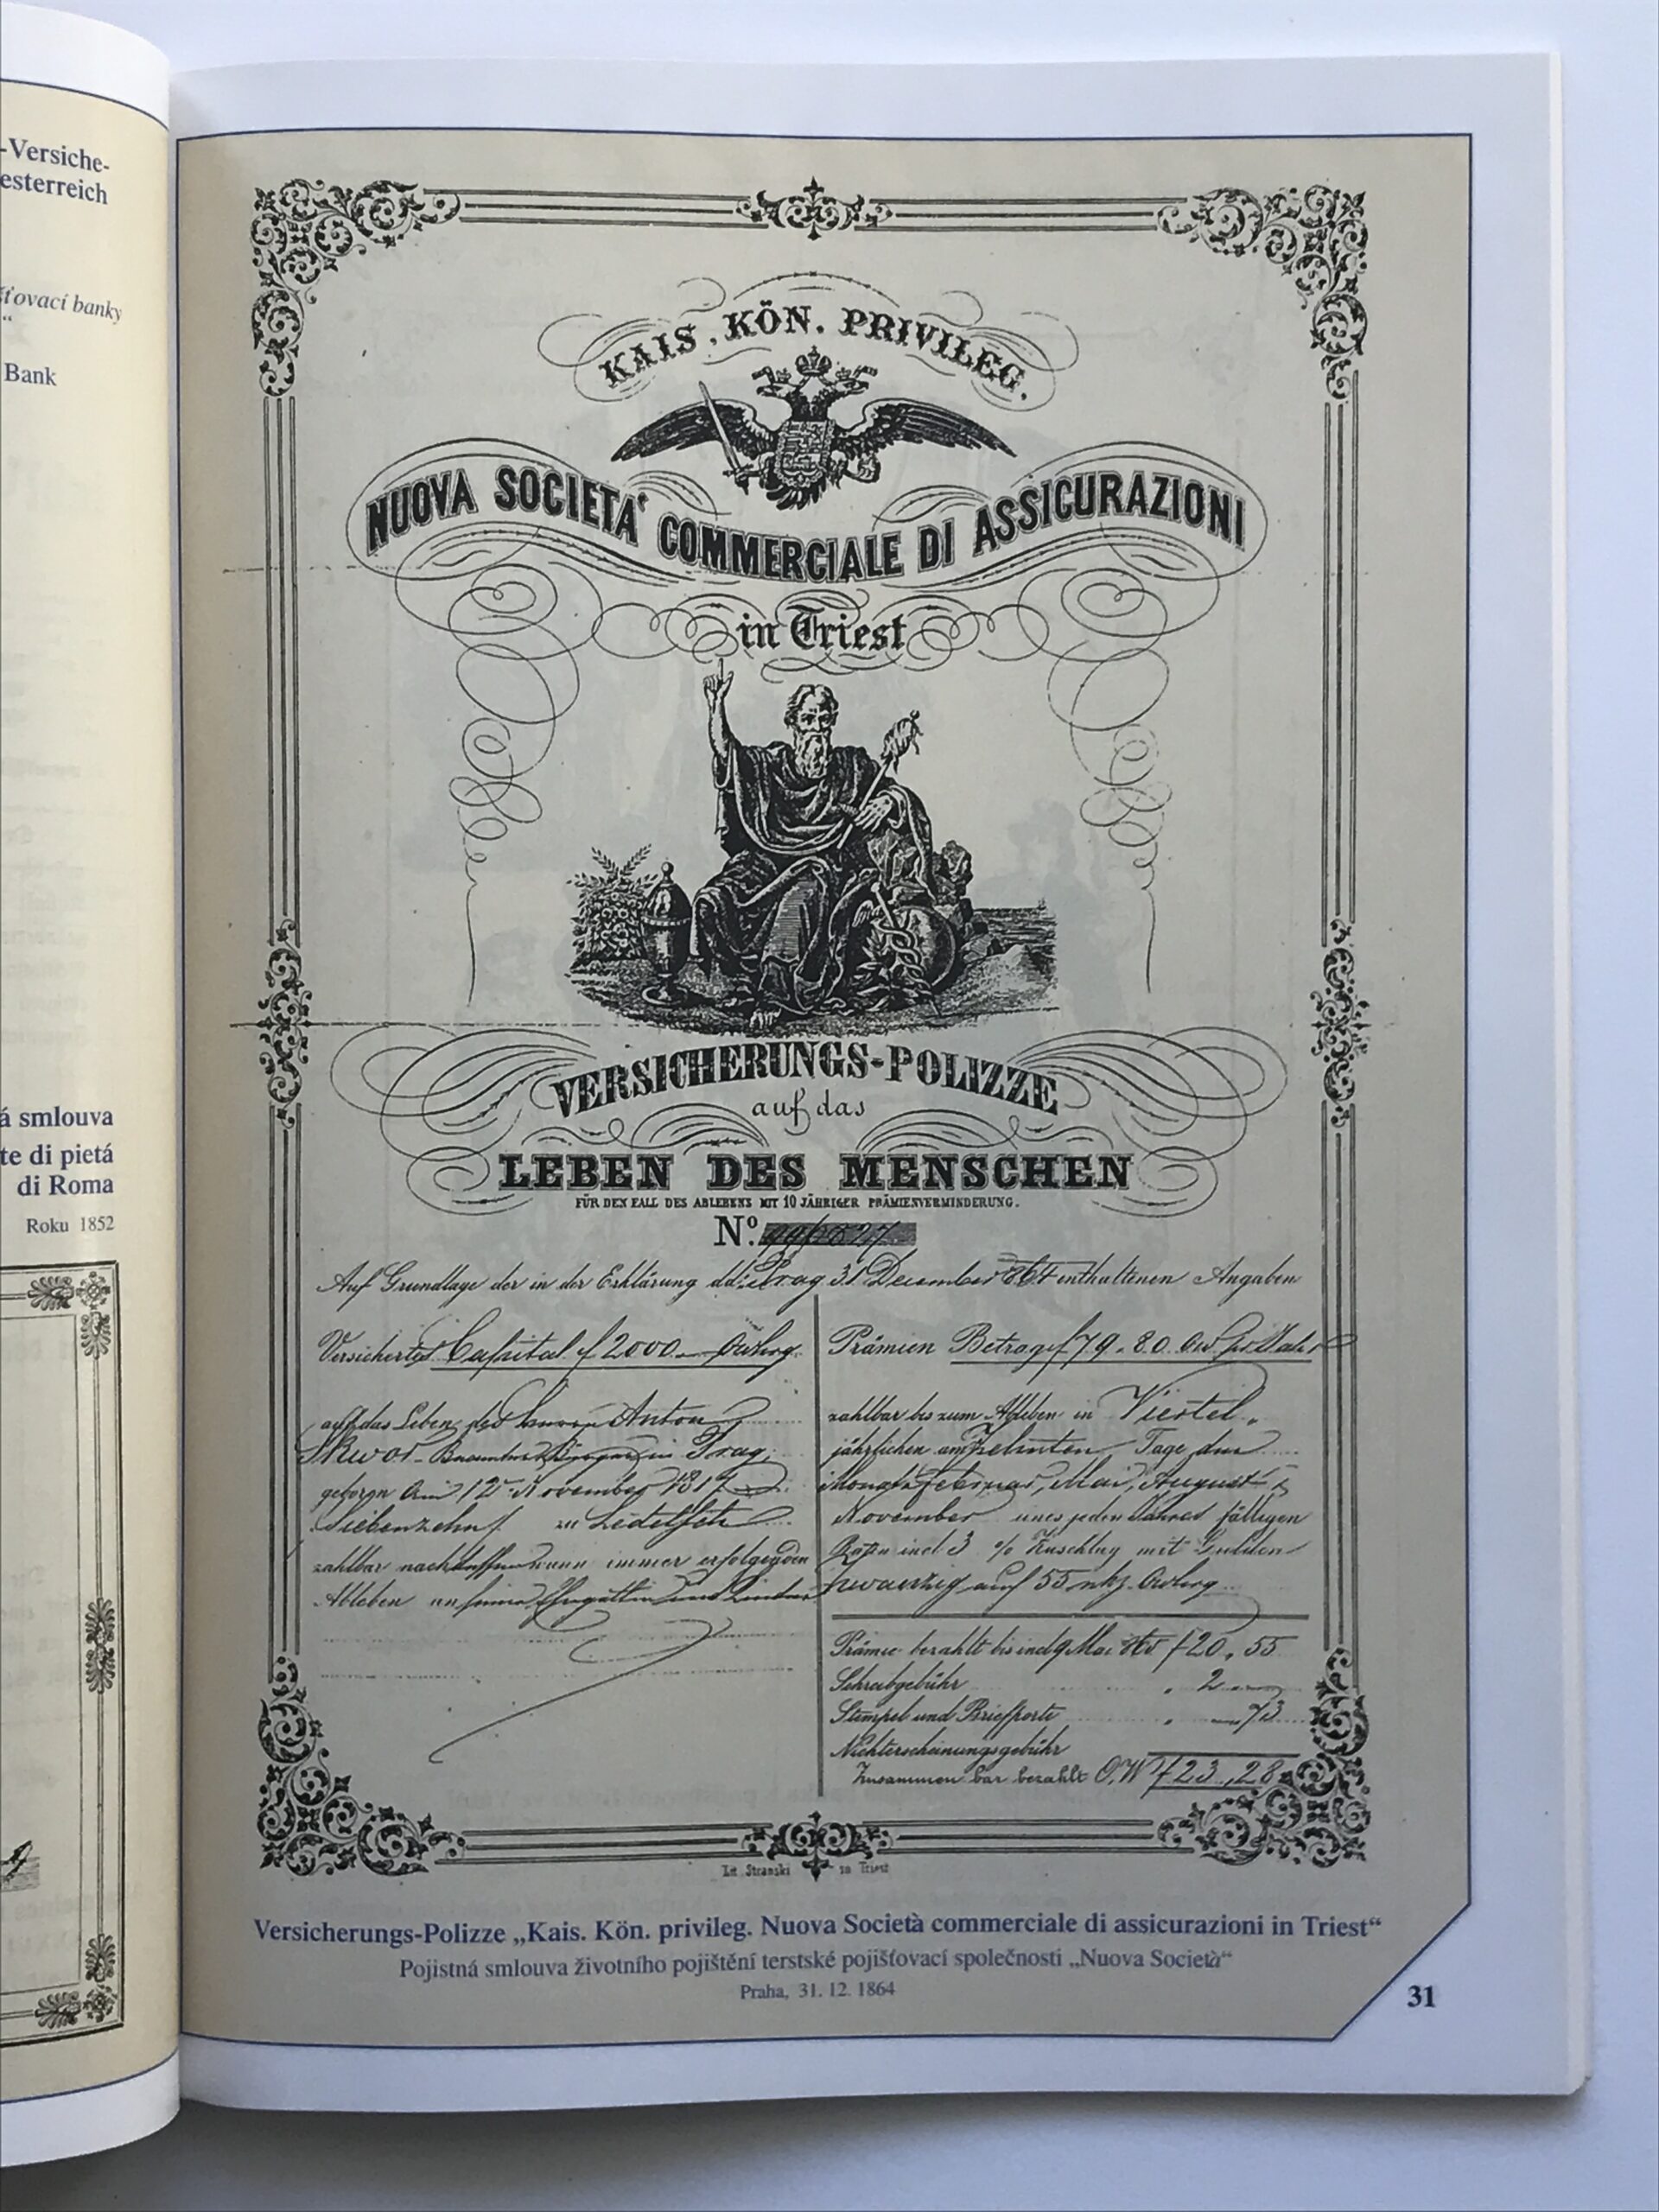 -Versiche-
esterreich
šťovací banky
“
Bank
á smlouva
te di pietá
di Roma
Roku 1852
KAIS. KÖN. PRIVILEG.
NUOVA SOCIETA' COMMERCIALE DI ASSICURAZIONI
in Triest
VERSICHERUNGS-POLIZZE
auf das
LEBEN DES MENSCHEN
FÜR DEN FALL DES ABLEBENS MIT 10 JÄHRIGER PRÄMIENVERMINDERUNG.
No.
Auf Grundlage der in der Erklärung dd. Prag 31 December 864 enthaltenen Angaben
Versichertes Capital f 2000
auf das Leben des Anton
Skwor in Prag
geboren am 12 November 1817
Siebenzehn zu
zahlbar nach wann immer erfolgenden
Ableben an seine Ehegattin und Kinder
Prämien Betrag f 79.80 Jahr
zahlbar bis zum Ableben in Viertel
jährlichen am Zehnten Tage der
Monate Februar, Mai, August &
November eines jeden Jahres fälligen
Raten incl 3 % Zuschlag mit Gulden
zwanzig auf 55
Prämie bezahlt bis incl 9 Mai 865 f 20.55
Schreibgebühr 2
Stempel und Briefporte 73
Nichterscheinungsgebühr
Zusammen bar bezahlt O.W f 23.28
Lit. Stranski in Triest
Versicherungs-Polizze „Kais. Kön. privileg. Nuova Società commerciale di assicurazioni in Triest“
Pojistná smlouva životního pojištění terstské pojišťovací společnosti „Nuova Società“
Praha, 31. 12. 1864
31